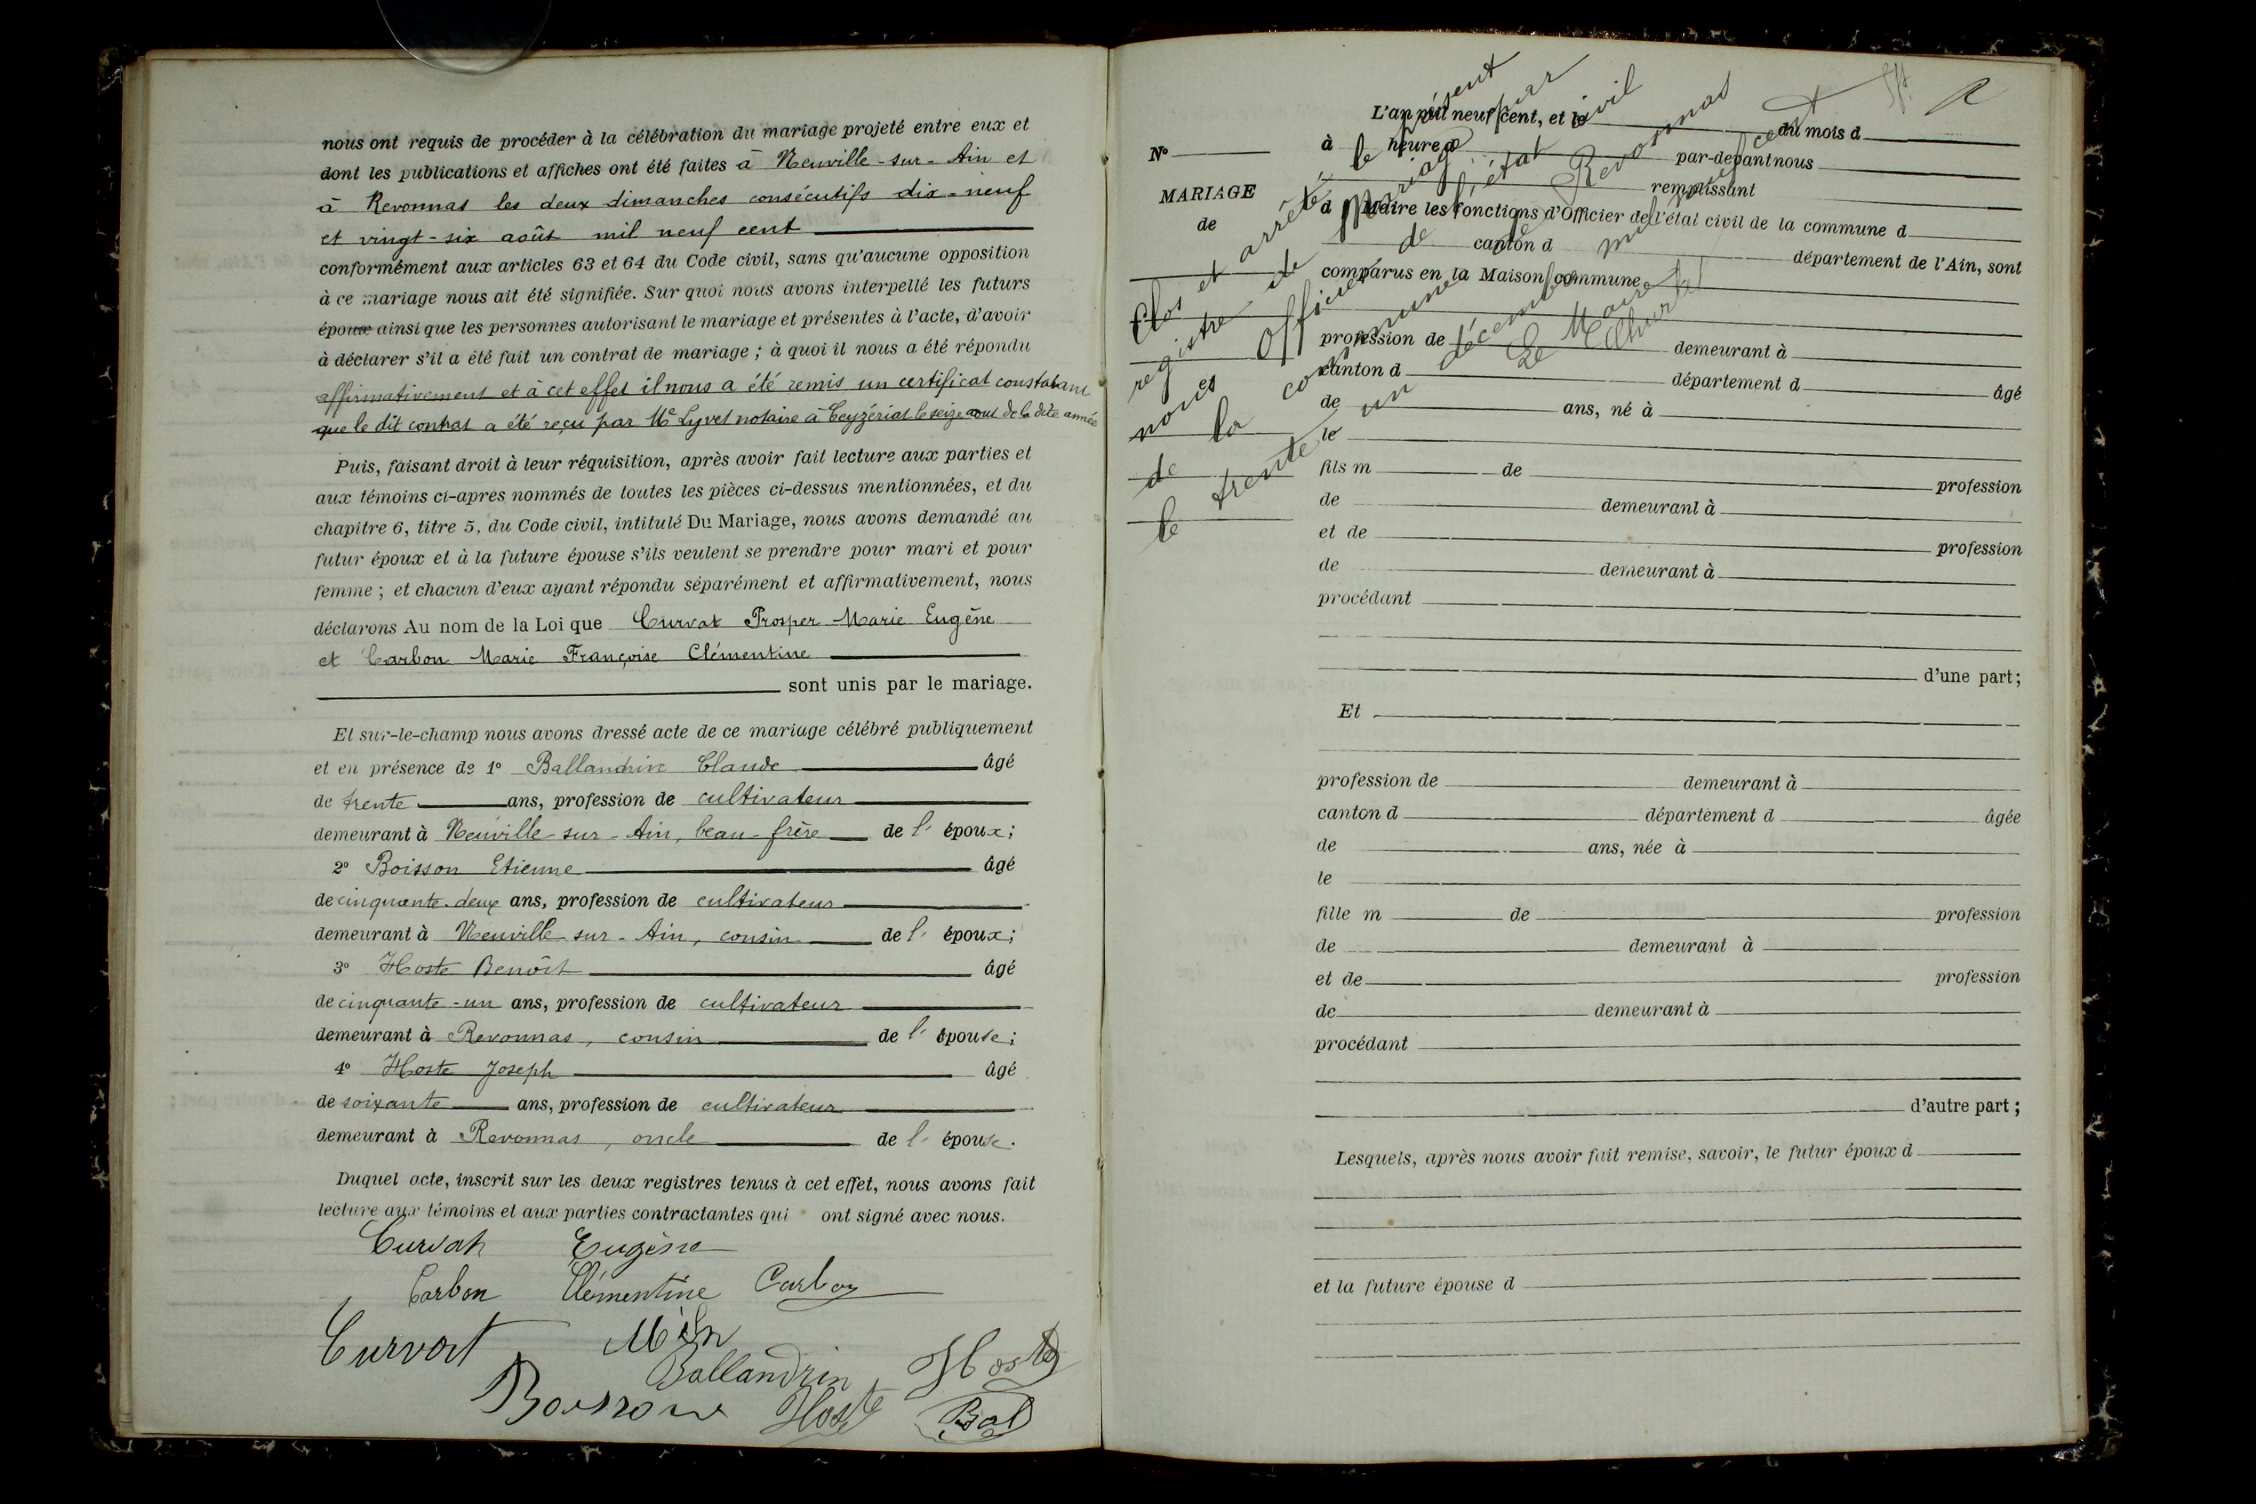 nous ont requis de procéder à la célébration du mariage projeté entre eux et
dont les publications et affiches ont été faites à Neuville-sur-Ain et
à Revonnas les deux dimanches consécutifs dix-neuf
et vingt-six août mil neuf cent
conformément aux articles 63 et 64 du Code civil, sans qu'aucune opposition
à ce mariage nous ait été signifiée. Sur quoi nous avons interpellé les futurs
époux ainsi que les personnes autorisant le mariage et présentes à l'acte, d'avoir
à déclarer s'il a été fait un contrat de mariage ; à quoi il nous a été répondu
affirmativement et à cet effet il nous a été remis un certificat constatant
que le dit contrat a été reçu par Me Lyvet notaire à Ceyzériat le seize aout de la dite année
Puis, faisant droit à leur réquisition, après avoir fait lecture aux parties et
aux témoins ci-apres nommés de toutes les pièces ci-dessus mentionnées, et du
chapitre 6, titre 5, du Code civil, intitulé Du Mariage, nous avons demandé au
futur époux et à la future épouse s'ils veulent se prendre pour mari et pour
femme ; et chacun d'eux ayant répondu séparément et affirmativement, nous
déclarons Au nom de la Loi que Curvat Prosper Marie Eugène
et Carbon Marie Françoise Clémentine
sont unis par le mariage.
Et sur-le-champ nous avons dressé acte de ce mariage célébré publiquement
et en présence de 1º Ballandrin Claude âgé
de trente ans, profession de cultivateur
demeurant à Neuville-sur-Ain, beau-frère de l' époux ;
2º Boisson Etienne âgé
de cinquante-deux ans, profession de cultivateur
demeurant à Neuville sur-Ain, cousin de l' époux ;
3º Hoste Benoît âgé
de cinquante-un ans, profession de cultivateur
demeurant à Revonnas, cousin de l' épouse ;
4º Hoste Joseph âgé
de soixante ans, profession de cultivateur
demeurant à Revonnas, oncle de l' épouse.
Duquel acte, inscrit sur les deux registres tenus à cet effet, nous avons fait
lecture aux témoins et aux parties contractantes qui ont signé avec nous.
Curvat Eugène
Carbon Clémentine Carbon
Curvat
Ballandrin Hoste
Boisson Hoste
L'an mil neuf cent, et le du mois d
Nº à heure d par-devant nous
MARIAGE remplissant
de d Maire les fonctions d'Officier de l'état civil de la commune d
canton d département de l'Ain, sont
comparus en la Maison commune
profession de demeurant à
canton d département d âgé
de ans, né à
le
fils m de profession
de demeurant à
et de profession
de demeurant à
procédant
d'une part ;
Et
profession de demeurant à
canton d département d âgée
de ans, née à
le
fille m de profession
de demeurant à
et de profession
de demeurant à
procédant
d'autre part ;
Lesquels, après nous avoir fait remise, savoir, le futur époux d
et la future épouse d
Clos et arrêté le présent
registre de mariage par
nous officier de l'état civil
de la commune de Revonnas
le trente un décembre mil neuf cent
Le Maire